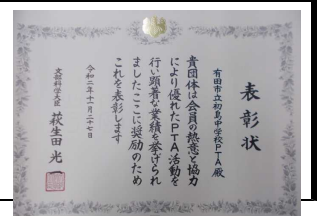 表彰状
有田市立初島中学校PTA殿
貴団体は会員の熱意と協力
により優れたPTA活動を
行い顕著な業績を挙げられ
ましたここに奨励のため
これを表彰します
令和二年十一月二十七日
文部科学大臣 萩生田光一